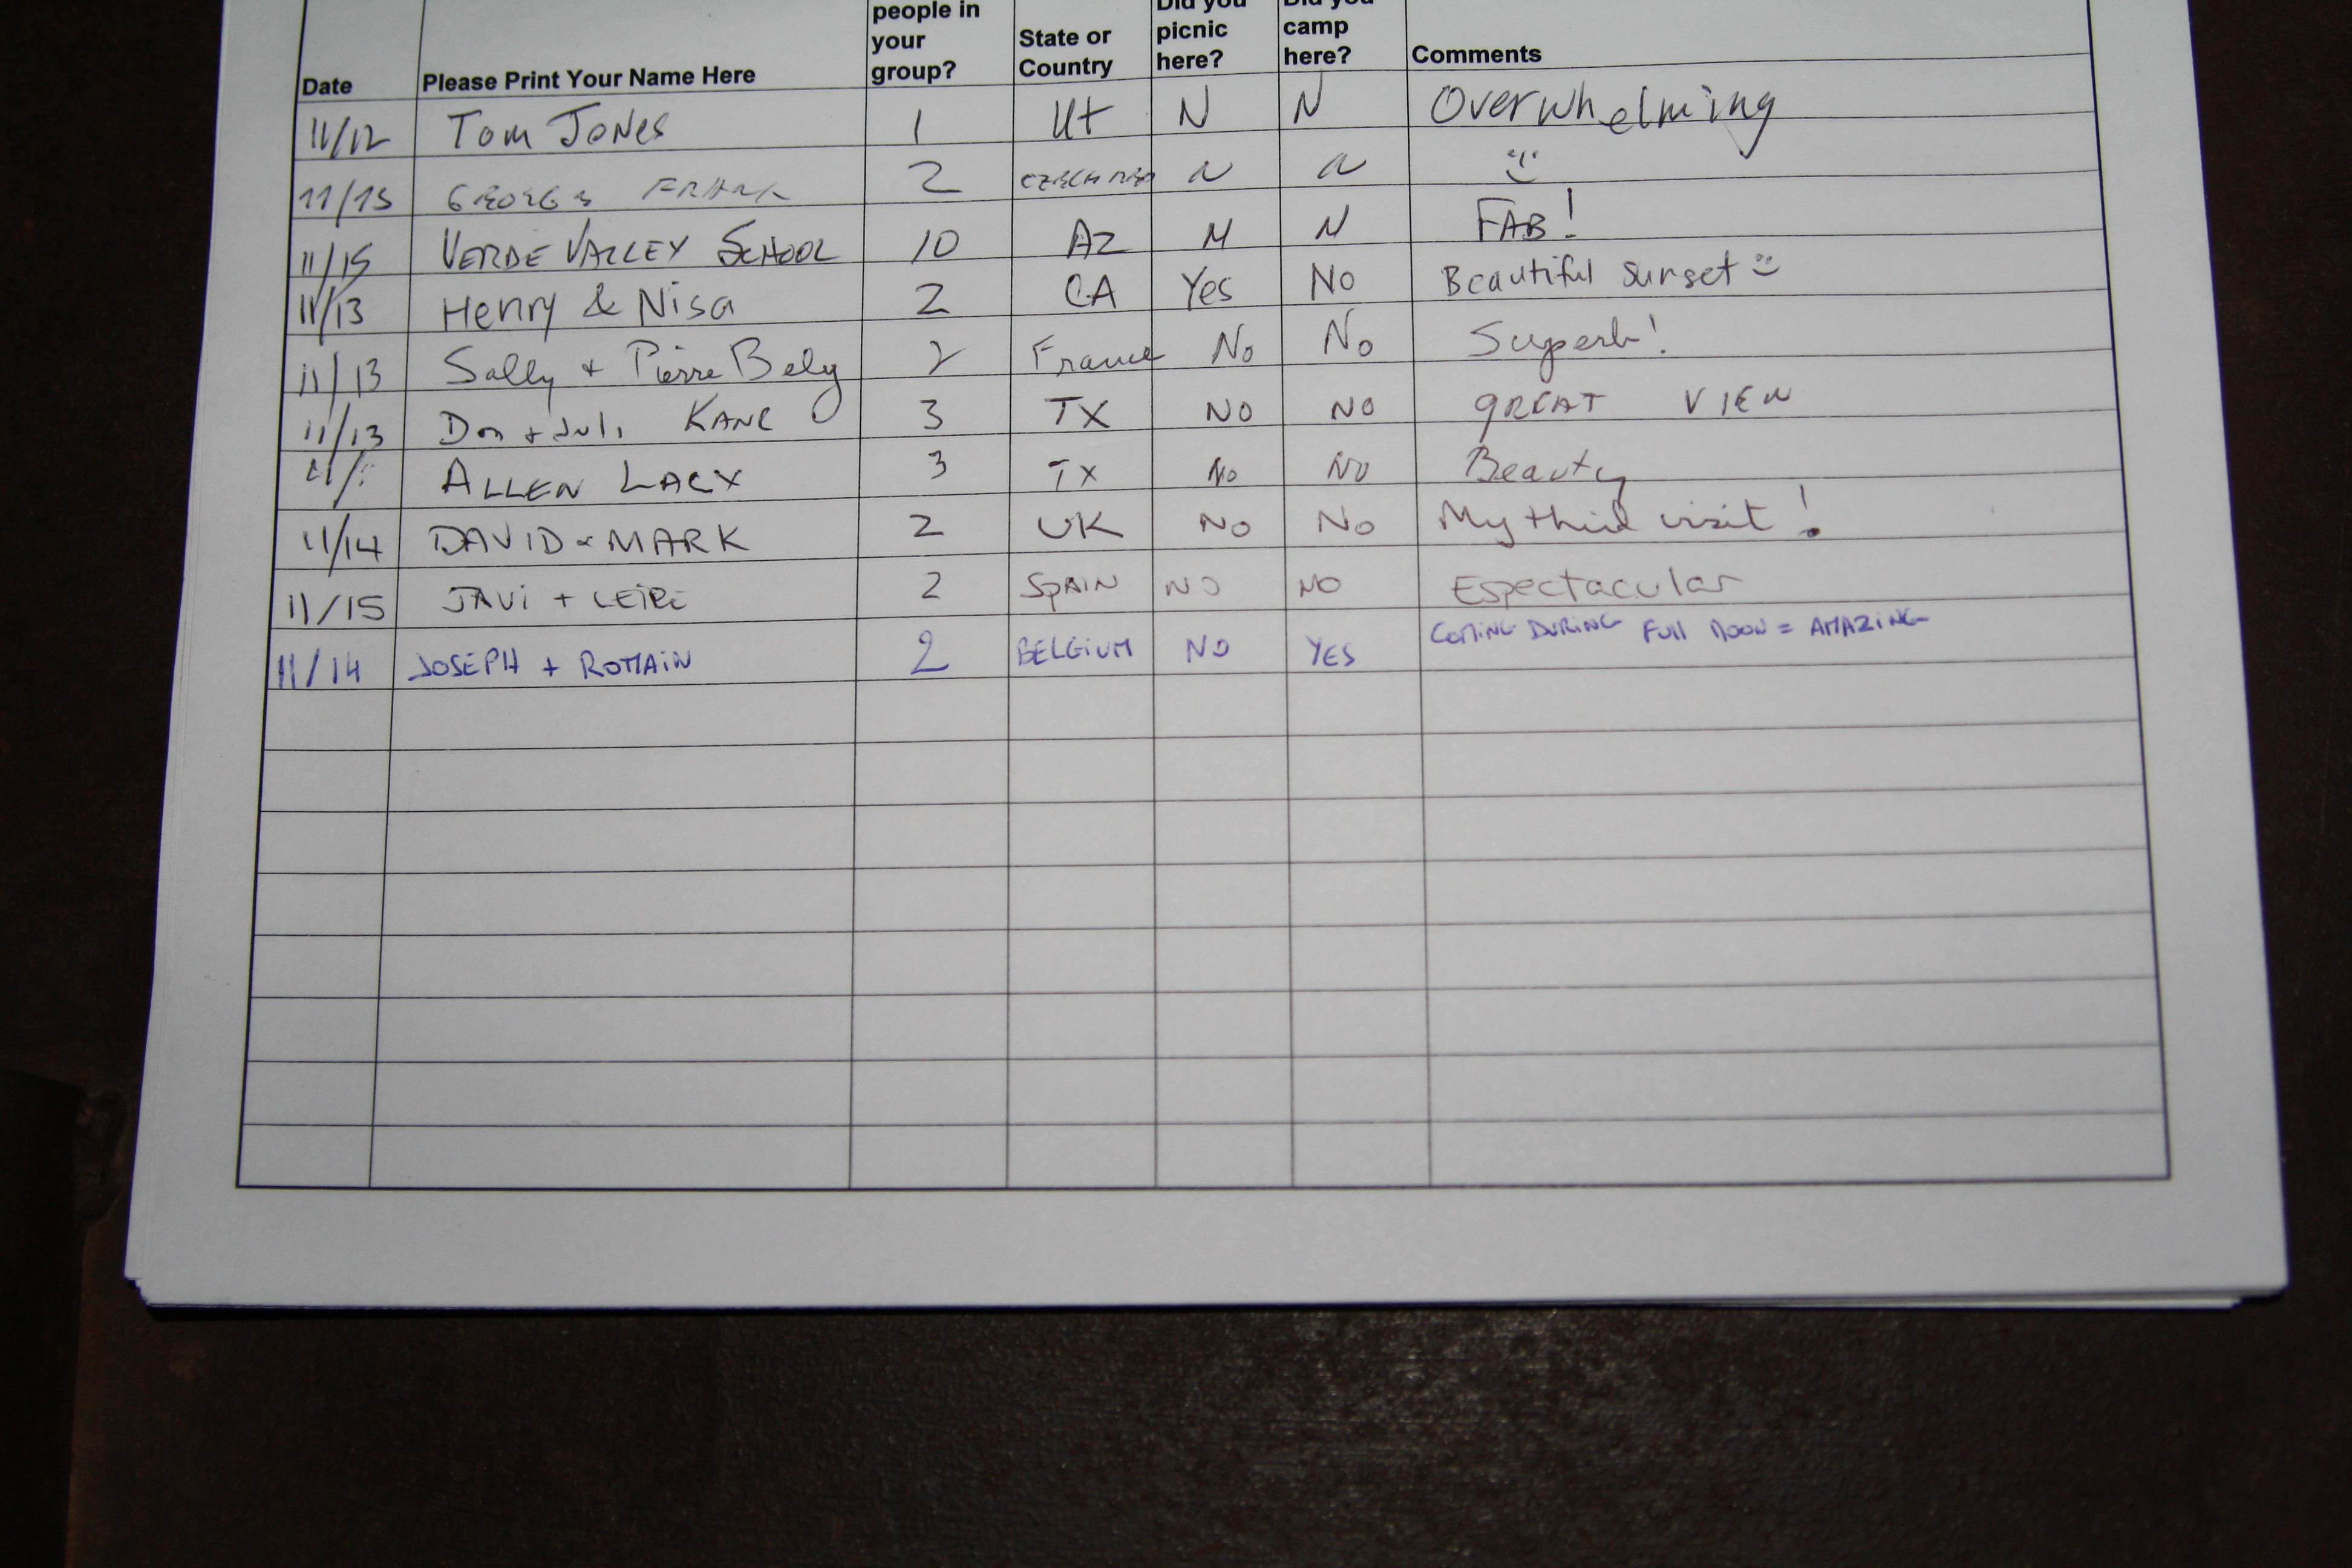 people in
your
group?
State or
Country
Did you
picnic
here?
Did you
camp
here?
Date Please Print Your Name Here Comments
11/12 Tom Jones 1 Ut N N Overwhelming
11/13 2 N N
11/15 VERDE VALLEY SCHOOL 10 AZ N N FAB!
11/13 Henry & Nisa 2 CA Yes No Beautiful sunset
11/13 Sally + Pierre Bely 2 France No No Superb!
11/13 Don + Juli KANE 3 TX NO NO GREAT VIEW
ALLEN LACY 3 TX NO NO Beauty
11/14 DAVID & MARK 2 UK NO NO My third visit!
11/15 JAVI + LEIRE 2 SPAIN NO NO Espectacular
11/14 JOSEPH + ROMAIN 2 BELGIUM NO YES COMING DURING FULL MOON = AMAZING